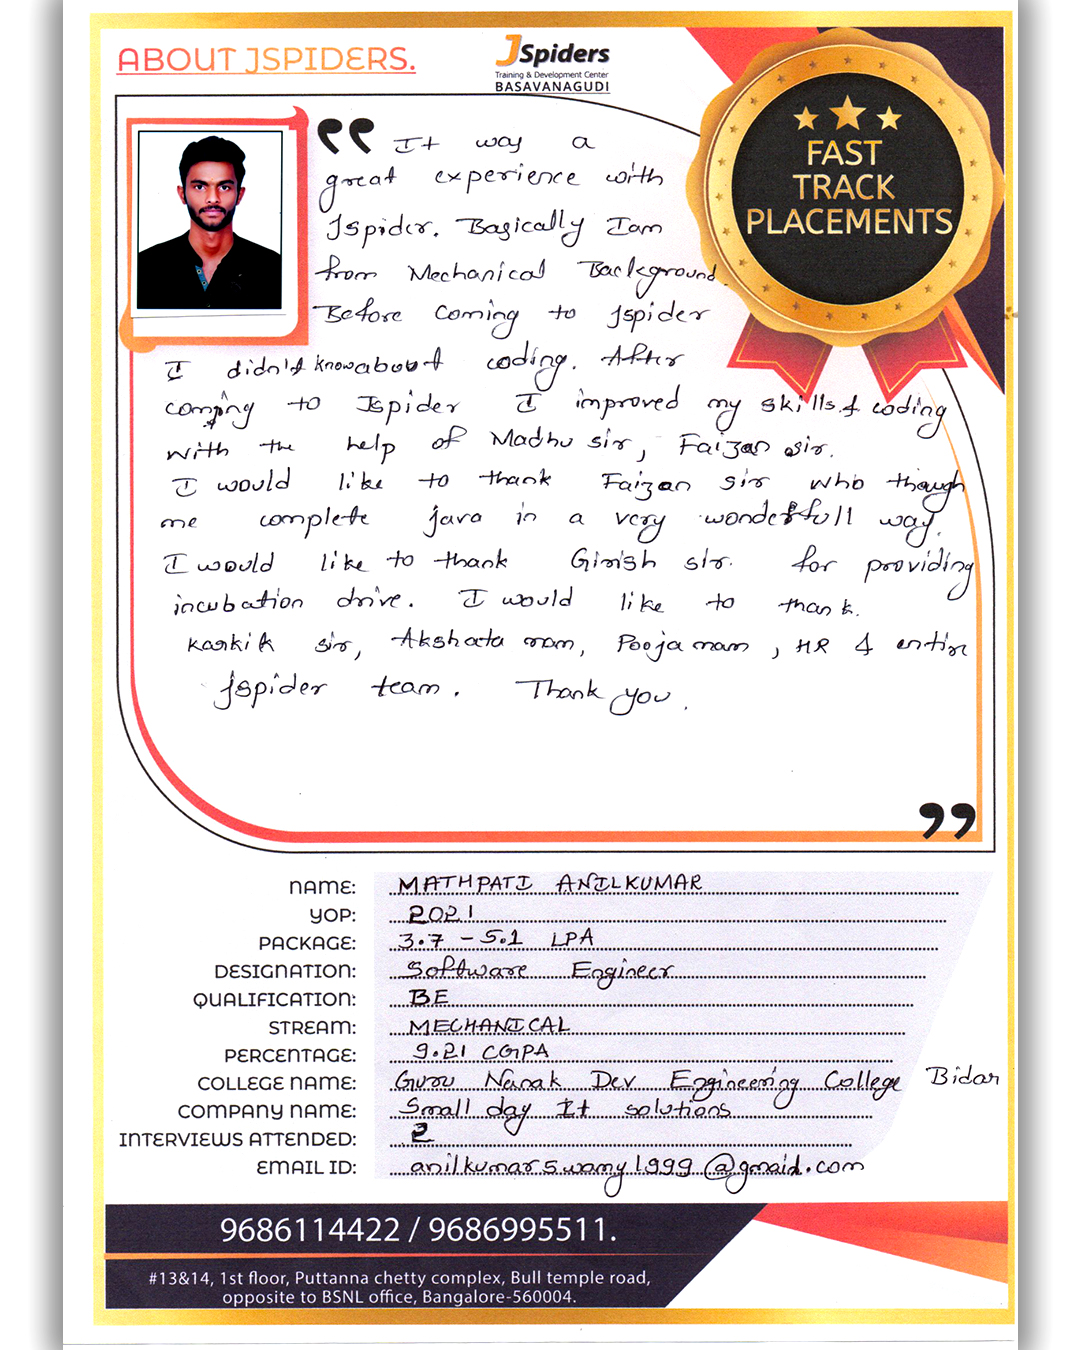 ABOUT JSPIDERS.
JSpiders
Training & Development Center
BASAVANAGUDI
FAST
TRACK
PLACEMENTS
It way a
great experience with
Jspider. Basically I am
from Mechanical Background.
Before coming to Jspider
I didn't know about coding. After
comping to Jspider I improved my skills & coding
with the help of Madhu sir, Faizan sir.
I would like to thank Faizan sir who though
me complete java in a very wonderfull way.
I would like to thank Girish sir. for providing
incubation drive. I would like to thank.
sir, Akshata mam, Pooja mam, HR & entire
Jspider team. Thank you.
NAME: MATHPATI ANILKUMAR
YOP: 2021
PACKAGE: 3.7 - 5.1 LPA
DESIGNATION: Software Engineer
QUALIFICATION: BE
STREAM: MECHANICAL
PERCENTAGE: 9.21 CGPA
COLLEGE NAME: Guru Nanak Dev Engineering College Bidar
COMPANY NAME: Small day It solutions
INTERVIEWS ATTENDED: 2
EMAIL ID: anilkumarswamy1999@gmaid.com
9686114422 / 9686995511.
#13&14, 1st floor, Puttanna chetty complex, Bull temple road,
opposite to BSNL office, Bangalore-560004.